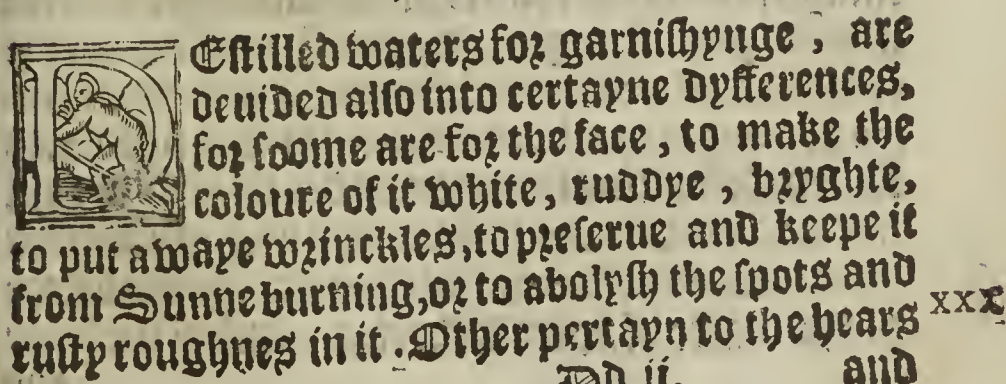 DEstilled waters for garnishynge, are
deuided also into certayne dyfferences,
for soome are for the face, to make the
coloure of it white, ruddye, bryghte,
to put awaye wrinckles, to preserue and keepe it
from Sunne burning, or to abolysh the spots and
rusty roughnes in it. Other pertayn to the hears
xxx
Dd ii. and